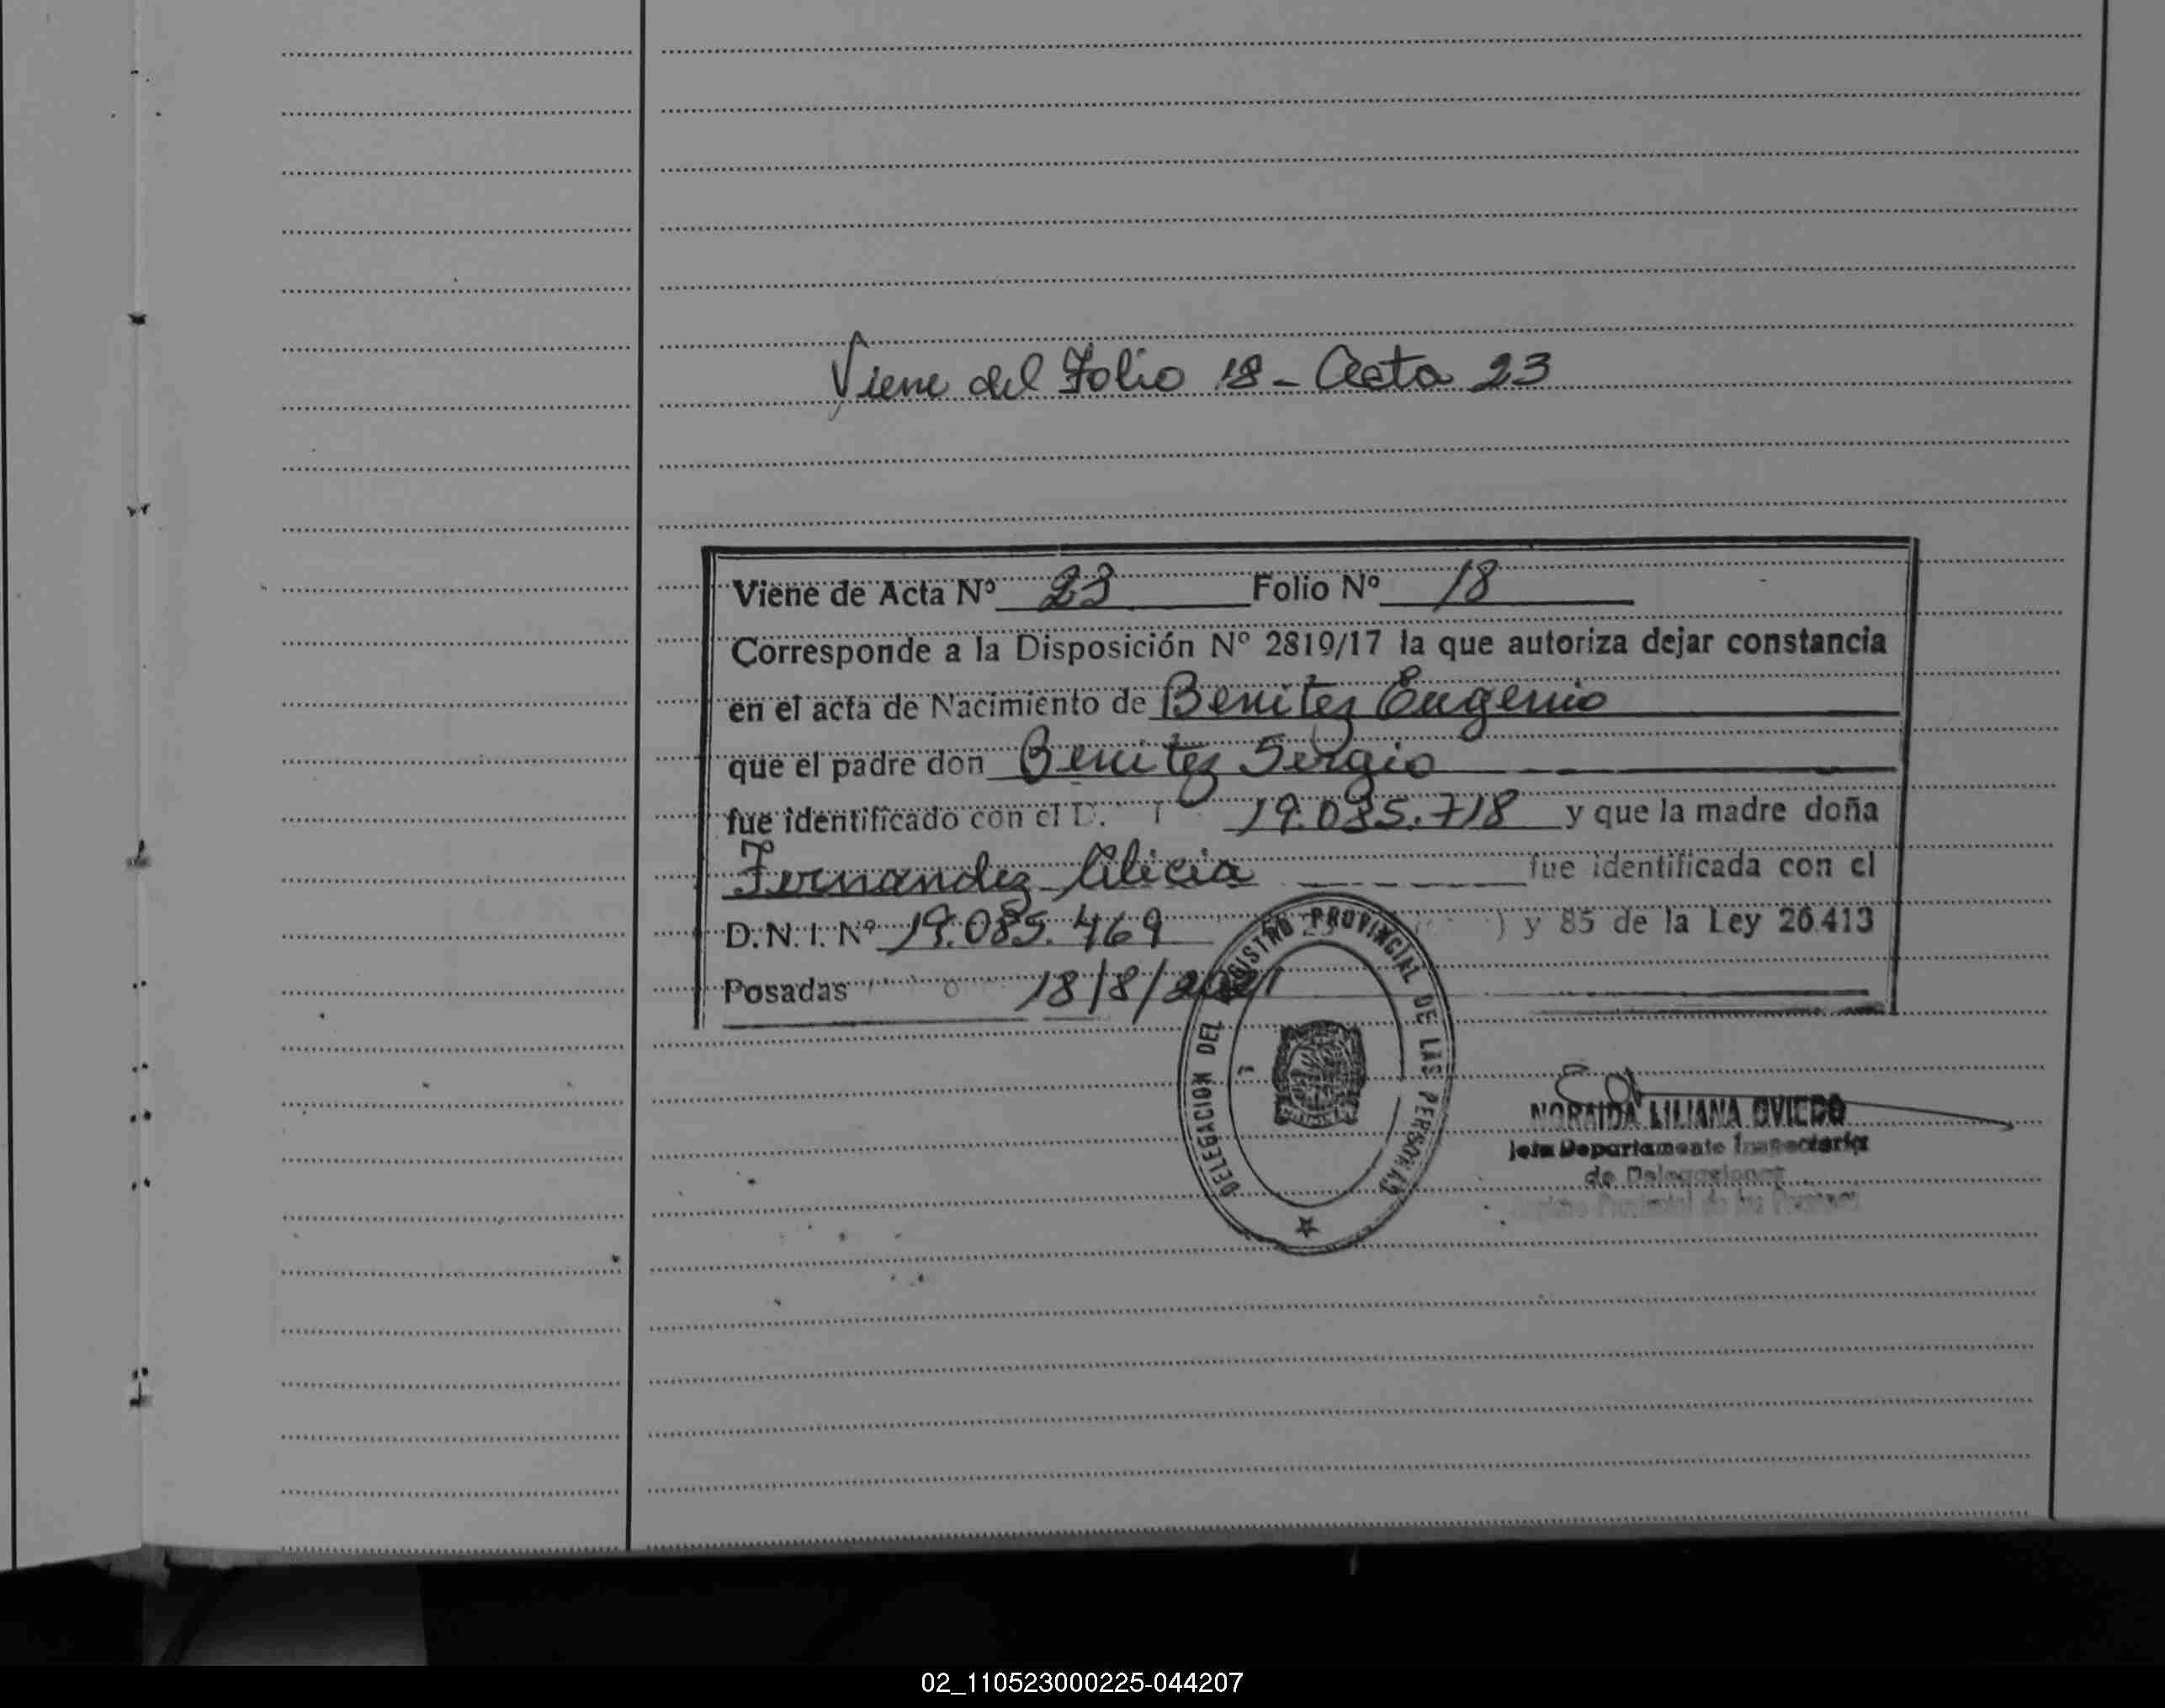 Viene del Folio 18 - Acta 23
Viene de Acta Nº 23 Folio Nº 18
Corresponde a la Disposición Nº 2819/17 la que autoriza dejar constancia
en el acta de Nacimiento de Benitez Eugenio
que el padre don Benitez Sergio
fue identificado con el D. 19.085.718 y que la madre doña
Fernandez Alicia fue identificada con el
D. N. I. Nº 19.085.469 ) y 85 de la Ley 26.413
Posadas 18/8/2021
DELEGACION DEL REGISTRO PROVINCIAL DE LAS PERSONAS
NORAIDA LILIANA OVIEDO
Jefa Departamento Inspectoria
de Delegaciones
Registro Provincial de las Personas
02_110523000225-044207